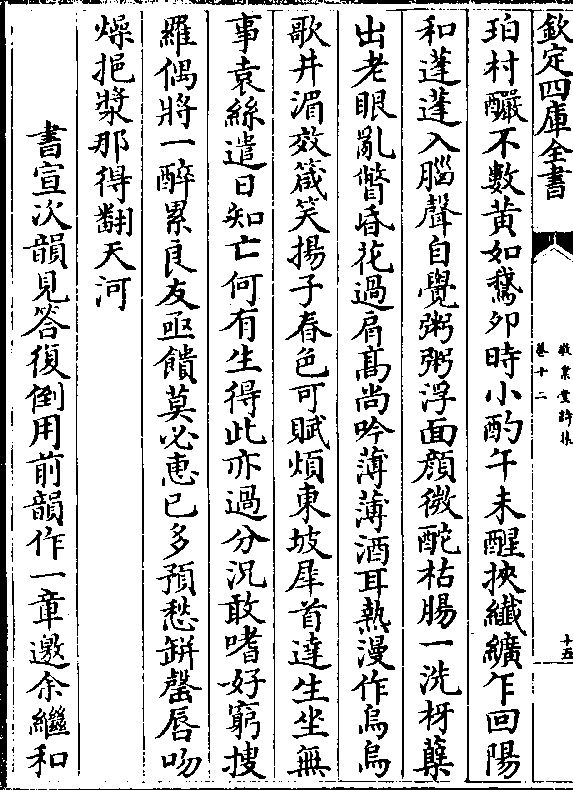 欽定四庫全書
敬業堂詩集
卷十二
十五
珀村釅不數黄如鵞夘時小酌午未醒挾纊纊乍回陽
和蓬蓬入腦聲自覺粥粥浮面顔微酡枯腸一洗枒蘖
出老眼亂瞥昏花過屑髙尚吟薄薄酒耳熱漫作烏烏
歌井湄效箴笑揚子春色可賦煩東坡犀首達生坐無
事袁絲遣日知亡何有生得此亦過分況敢嗜好窮搜
羅偶將一醉累良友亟饋莫必恵已多預愁缾罄唇吻
燥挹漿那得翻天河
書宣次韻見答復倒用前韻作一章邀余繼和